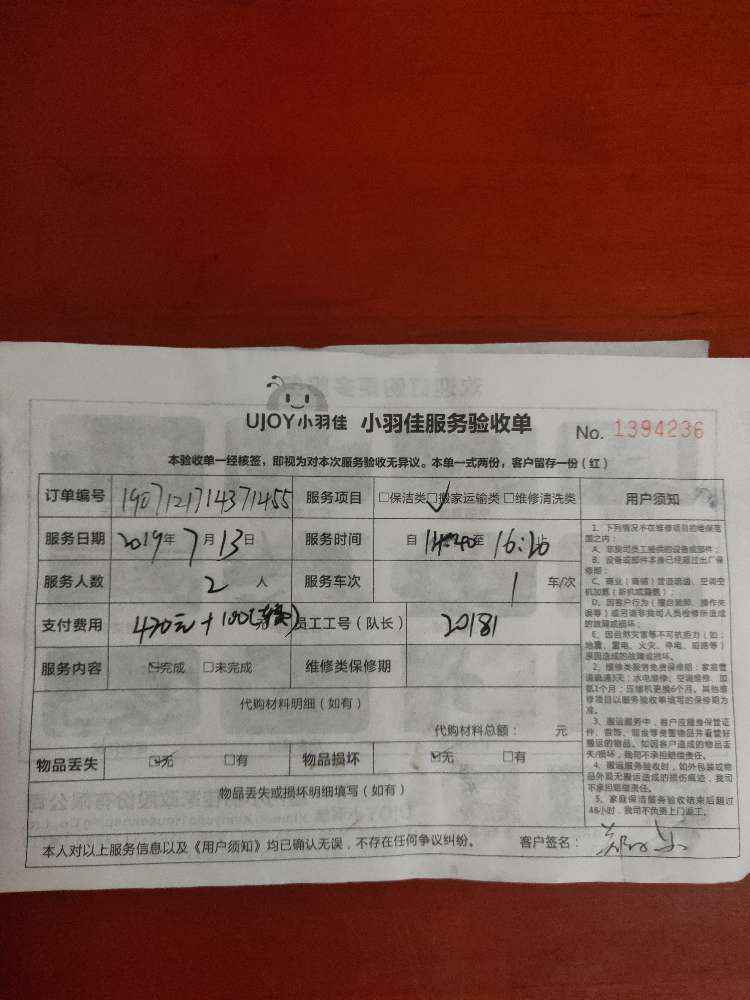 UJOY小羽佳 小羽佳服务验收单 No. 1394236
本验收单一经核签，即视为对本次服务验收无异议。本单一式两份，客户留存一份（红）
订单编号 1907121714371455 服务项目 □保洁类□搬家运输类□维修清洗类 用户须知
服务日期 2019年7月13日 服务时间 自 14:40至 16:20止
服务人数 2 人 服务车次 1 车/次
支付费用 470元+100 员工工号（队长） 20181
服务内容 ☑完成 □未完成 维修类保修期
代购材料明细（如有）
代购材料总额： 元
物品丢失 ☑无 □有 物品损坏 ☑无 □有
物品丢失或损坏明细填写（如有）
本人对以上服务信息以及《用户须知》均已确认无误，不存在任何争议纠纷。 客户签名：
1、下列情况不在维修项目的维保范
围之内：
A、非我司员工提供的设备或部件；
B、设备或部件本身已经超过出厂保
修期；
C、商业（商铺）管道疏通、空调空
机加氟（新机或漏氟）；
D、因客户行为（擅自装卸、操作失
误等）或另请非我司人员检修所造成
的故障或损坏。
E、因自然灾害等不可抗力（如：
地震、雷电、火灾、停电、短路等）
原因造成的故障或损坏。
2、维修类服务免费保修期：家庭管
道疏通3天；水电维修、空调维修、加
氟1个月；压缩机更换6个月。其他维
修项目以服务验收单填写的保修期为
准。
3、搬运服务中，客户应随身保管证
件、首饰、现金等贵重物品并看管好
搬运的物品。如因客户造成的物品丢
失/损坏，我司不承担赔偿责任。
4、搬运服务验收时，如外包装或物
品外观无搬运造成的损伤痕迹，我司
不承担赔偿责任。
5、家庭保洁服务验收结束后超过
48小时，我司不负责上门返工。